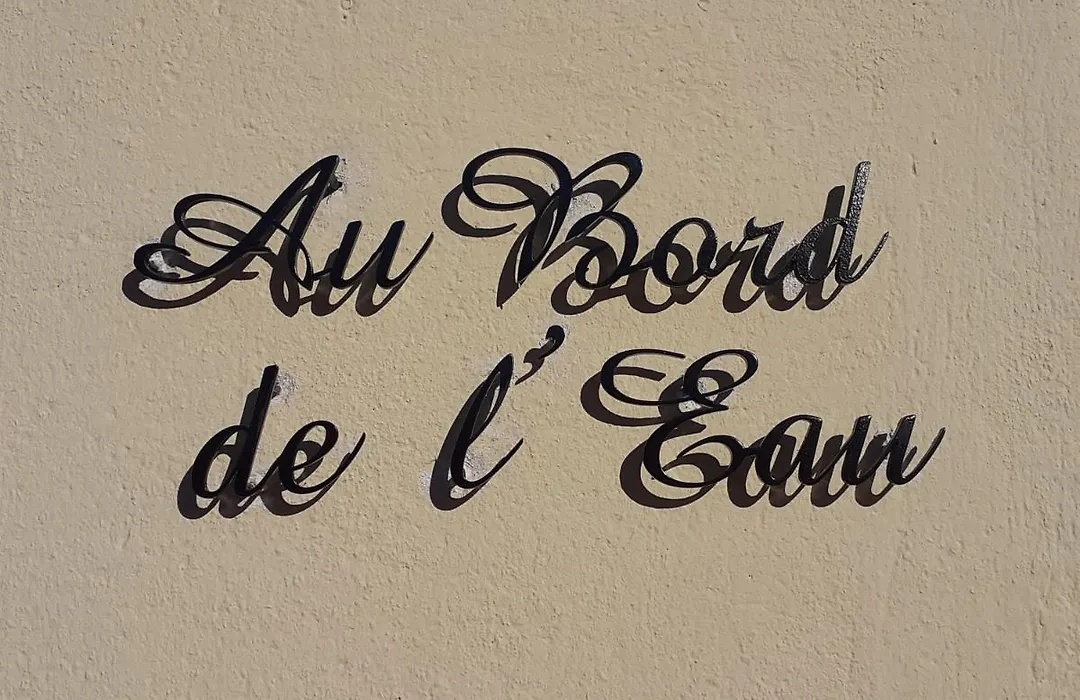 Au Bord
de l'Eau